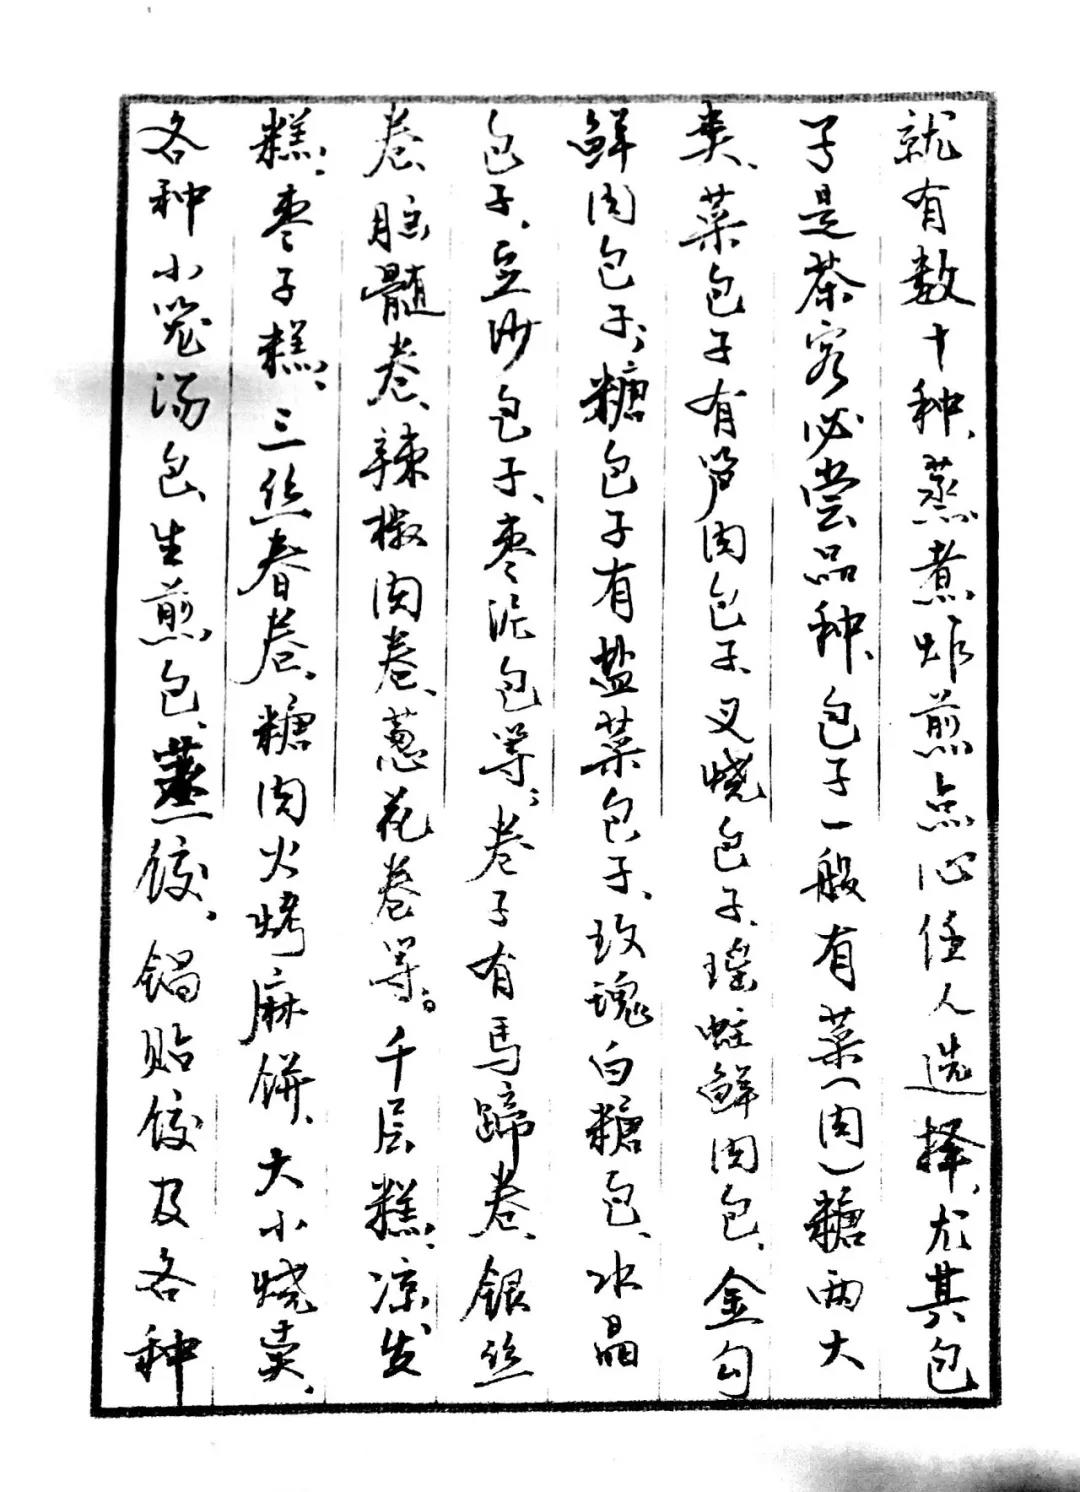 就有数十种，蒸煮炸煎点心任人选择，尤其包
子是茶客必尝品种，包子一般有菜（肉）糖两大
类、菜包子有笋肉包子、叉烧包子、瑶蛀鲜肉包、金勾
鲜肉包子；糖包子有盐菜包子、玫瑰白糖包、水晶
包子、豆沙包子、枣泥包等；卷子有马蹄卷、银丝
卷、脑髓卷、辣椒肉卷、葱花卷等。千层糕、凉发
糕、枣子糕、三丝春卷、糖肉火烤麻饼、大小烧卖、
各种小笼汤包、生煎包、蒸饺、锅贴饺及各种